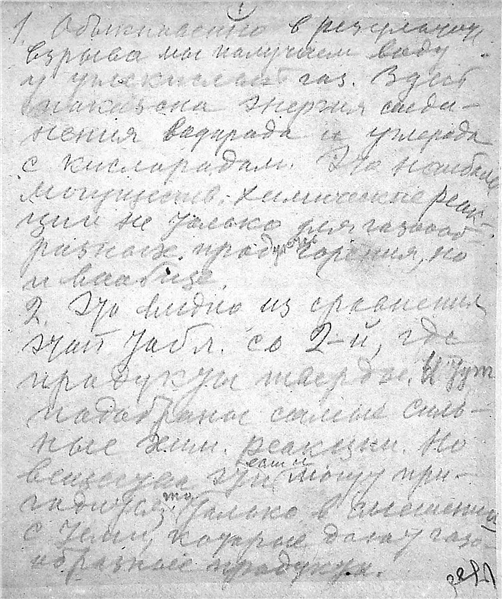 1. Обыкновенно в результате
взрыва мы получаем воду
и углекислый газ. Здесь
показана энергия соеди-
нения водорода и углерода
с кислородам. Это наиболее
могуществ. химические реак-
ции не только для газооб-
разных продуктов горения, но
и вообще.
2. Это видно из сравнения
этой табл. со 2-й, где
продукты тверды. И тут
подобраны самые силь-
ные хим. реакции. Но
вещества эти если и могут при-
годиться, то только в смешении
с теми, которые дают газо-
образные продукты.